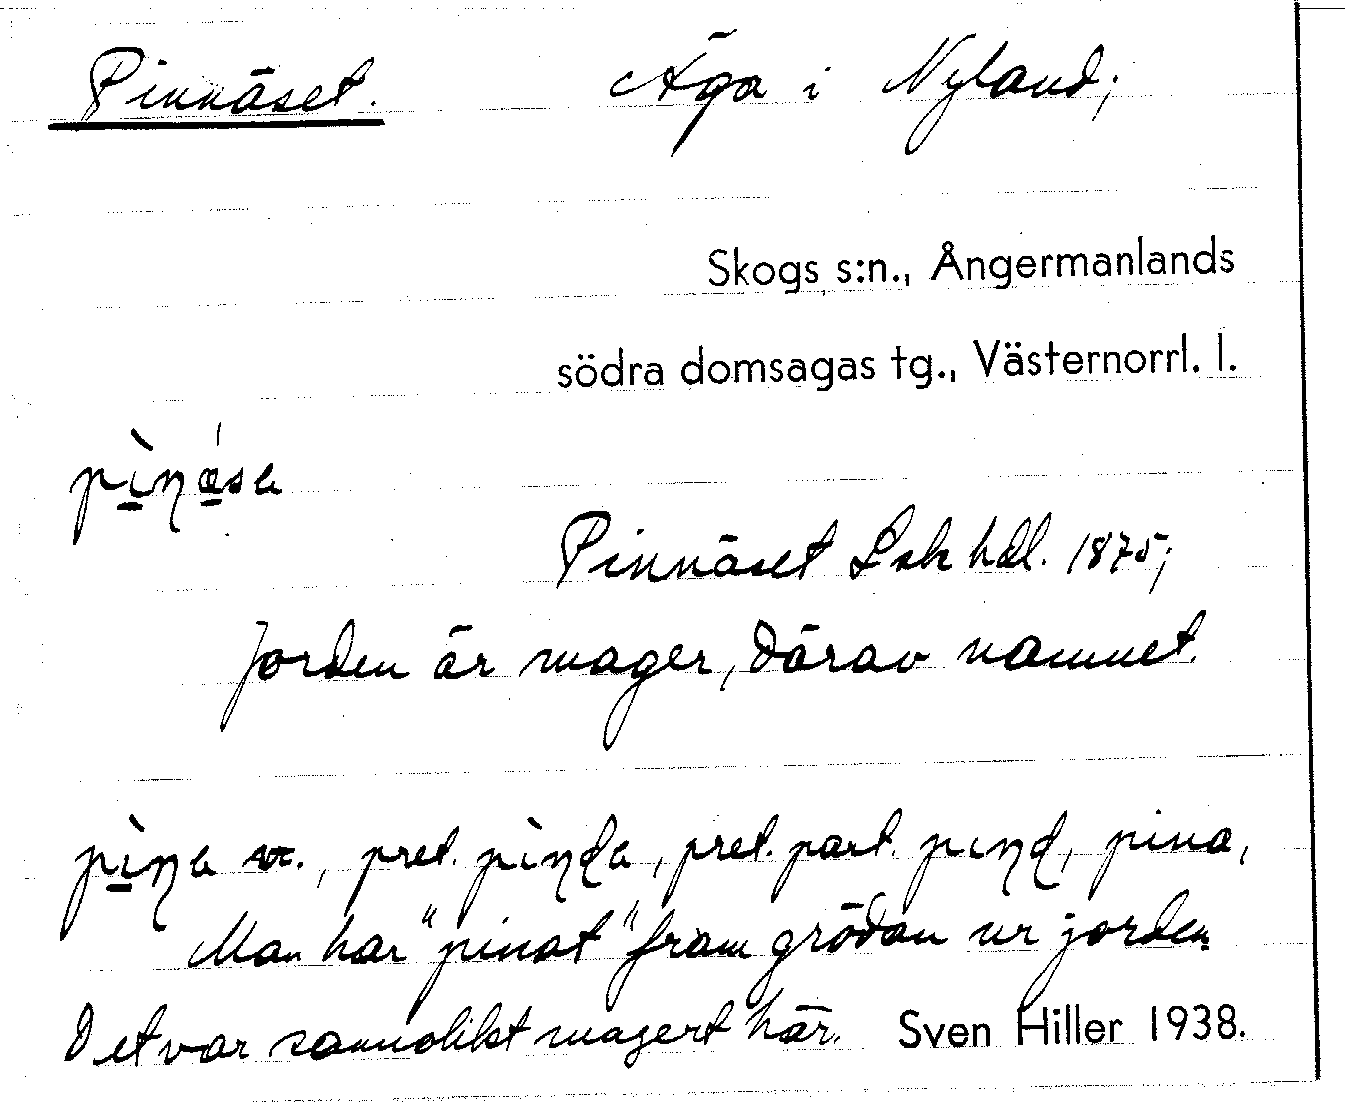 Pinnäset. Äga i Nyland;
Skogs s:n., Ångermanlands
södra domsagas tg., Västernorrl. l.
pìnǽsa
Pinnäset Lsk hdl. 1875;
Jorden är mager, därav namnet.
pìna vb., pret. pìnda, pret. part. pınd, pina,
Man har "pinat" fram grödan ur jorden.
Det var sannolikt magert här. Sven Hiller 1938.